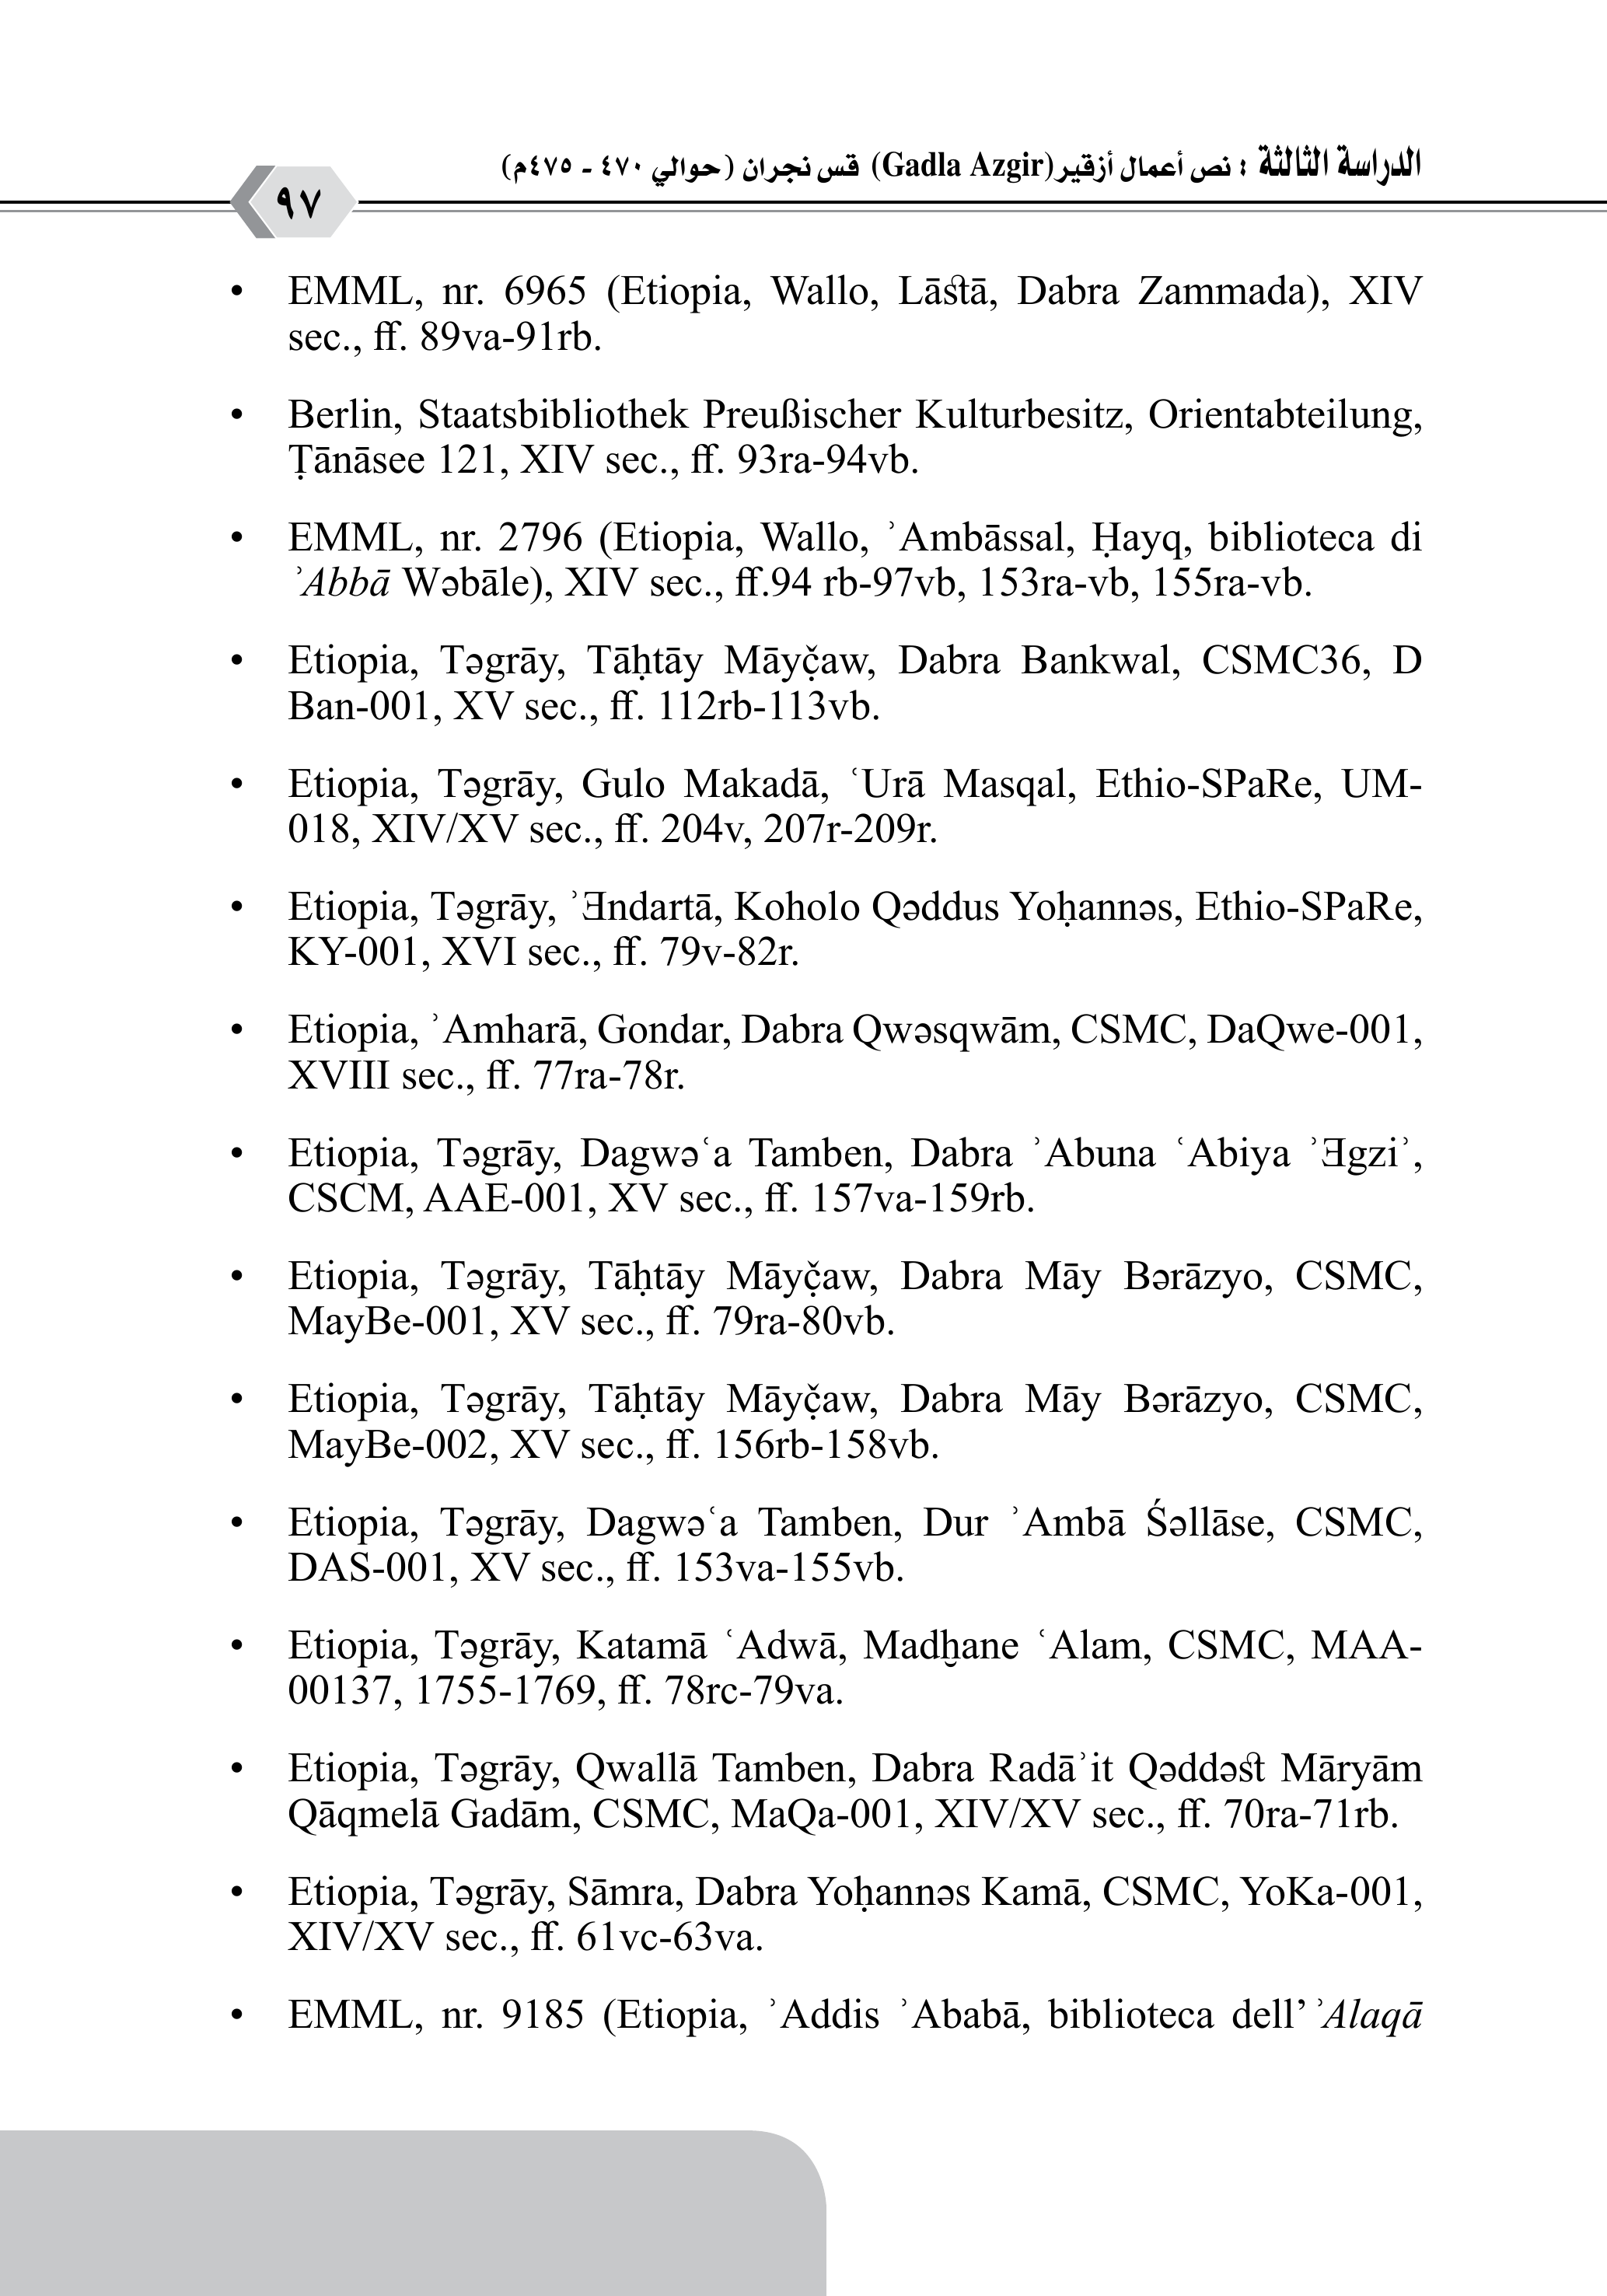 الدراسة الثالثة : نص أعمال أزقير(Gadla Azgir) قس نجران (حوالي ٤٧٠ - ٤٧٥م)
٩٧
• EMML, nr. 6965 (Etiopia, Wallo, Lāstā, Dabra Zammada), XIV
sec., ff. 89va-91rb.
• Berlin, Staatsbibliothek Preußischer Kulturbesitz, Orientabteilung,
Ṭānāsee 121, XIV sec., ff. 93ra-94vb.
• EMML, nr. 2796 (Etiopia, Wallo, ʾAmbāssal, Ḥayq, biblioteca di
ʾAbbā Wəbāle), XIV sec., ff.94 rb-97vb, 153ra-vb, 155ra-vb.
• Etiopia, Təgrāy, Tāḥtāy Māyč̣aw, Dabra Bankwal, CSMC36, D
Ban-001, XV sec., ff. 112rb-113vb.
• Etiopia, Təgrāy, Gulo Makadā, ʿUrā Masqal, Ethio-SPaRe, UM-
018, XIV/XV sec., ff. 204v, 207r-209r.
• Etiopia, Təgrāy, ʾƎndartā, Koholo Qəddus Yoḥannəs, Ethio-SPaRe,
KY-001, XVI sec., ff. 79v-82r.
• Etiopia, ʾAmharā, Gondar, Dabra Qwəsqwām, CSMC, DaQwe-001,
XVIII sec., ff. 77ra-78r.
• Etiopia, Təgrāy, Dagwəʿa Tamben, Dabra ʾAbuna ʿAbiya ʾƎgziʾ,
CSCM, AAE-001, XV sec., ff. 157va-159rb.
• Etiopia, Təgrāy, Tāḥtāy Māyč̣aw, Dabra Māy Bərāzyo, CSMC,
MayBe-001, XV sec., ff. 79ra-80vb.
• Etiopia, Təgrāy, Tāḥtāy Māyč̣aw, Dabra Māy Bərāzyo, CSMC,
MayBe-002, XV sec., ff. 156rb-158vb.
• Etiopia, Təgrāy, Dagwəʿa Tamben, Dur ʾAmbā Śəllāse, CSMC,
DAS-001, XV sec., ff. 153va-155vb.
• Etiopia, Təgrāy, Katamā ʿAdwā, Madḫane ʿAlam, CSMC, MAA-
00137, 1755-1769, ff. 78rc-79va.
• Etiopia, Təgrāy, Qwallā Tamben, Dabra Radāʾit Qəddəst Māryām
Qāqmelā Gadām, CSMC, MaQa-001, XIV/XV sec., ff. 70ra-71rb.
• Etiopia, Təgrāy, Sāmra, Dabra Yoḥannəs Kamā, CSMC, YoKa-001,
XIV/XV sec., ff. 61vc-63va.
• EMML, nr. 9185 (Etiopia, ʾAddis ʾAbabā, biblioteca dell’ ʾAlaqā